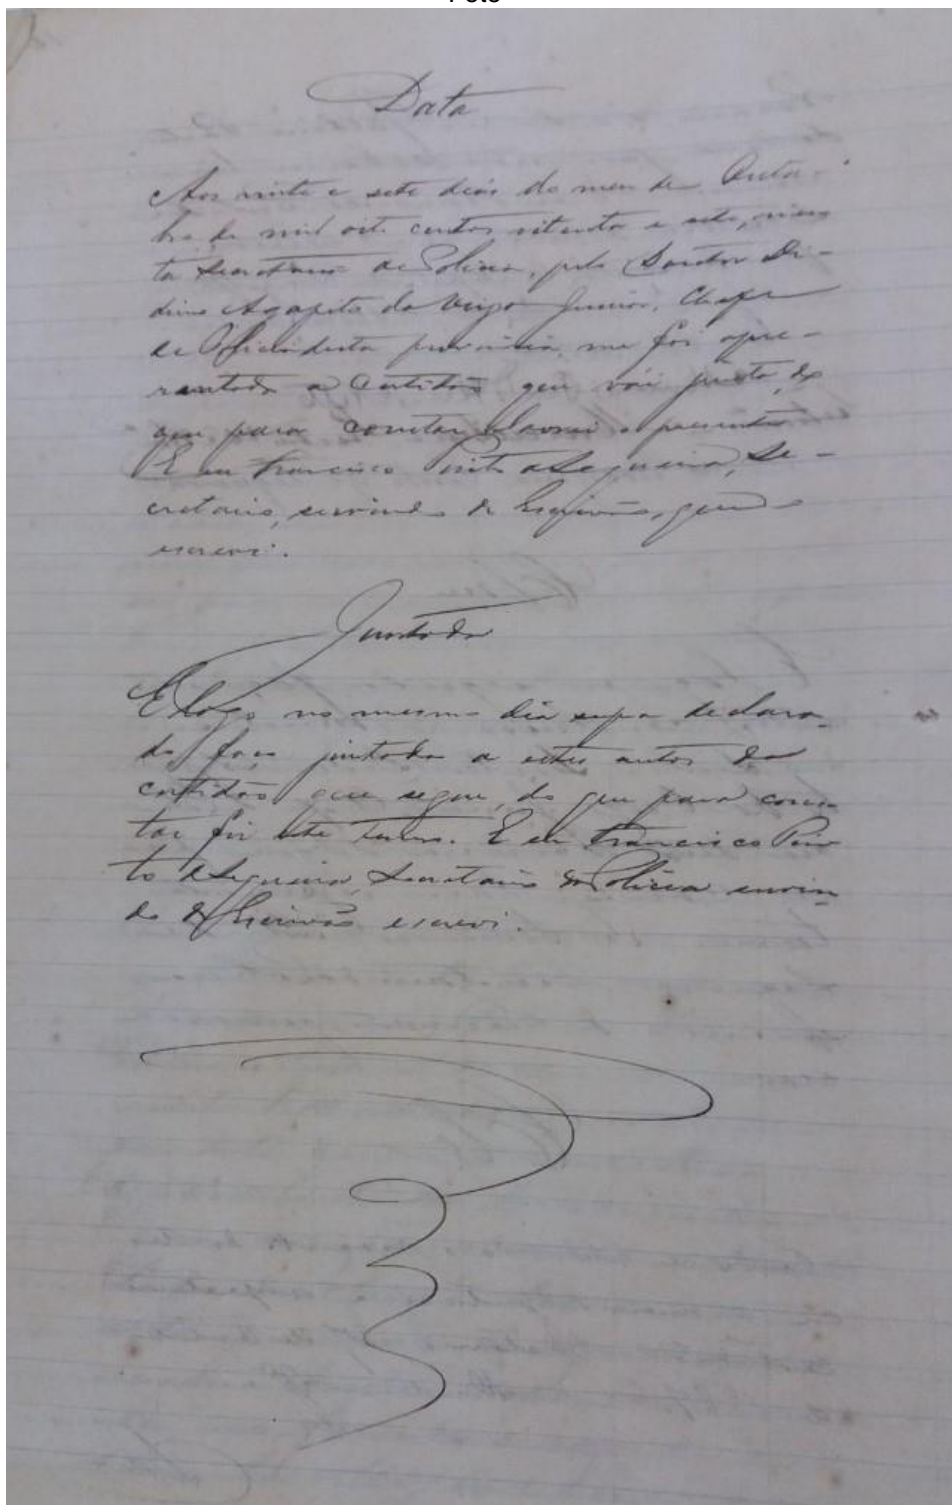 Data
Aos vinte e sete dias do mez de Outu-
bro de mil oito centos setenta e sete, nes
ta Secretaria de Policia, pelo Doutor Di-
dimo Agapito da Veiga Junior, Chefe
de Policia desta provincia, me foi apre-
sentada a Certidão que vai junta, do
que para constar lavrei o presente
E eu Francisco Pinto de Sequeira, Se-
cretario, servindo de Escrivão, que o
escrevi.
Juntada
E logo no mesmo dia supra declara-
do faço juntada a estes autos da
certidão que segue, do que para cons-
tar fiz este termo. E eu Francisco Pin
to de Sequeira, Secretario de Policia servin-
do de Escrivão escrevi.